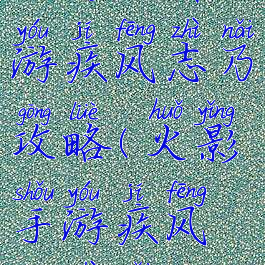 yóu jí fēng zhì nǎi
游疾风志乃
gōng lüè huǒ yǐng
攻略(火影
shǒu yóu jí fēng
手游疾风